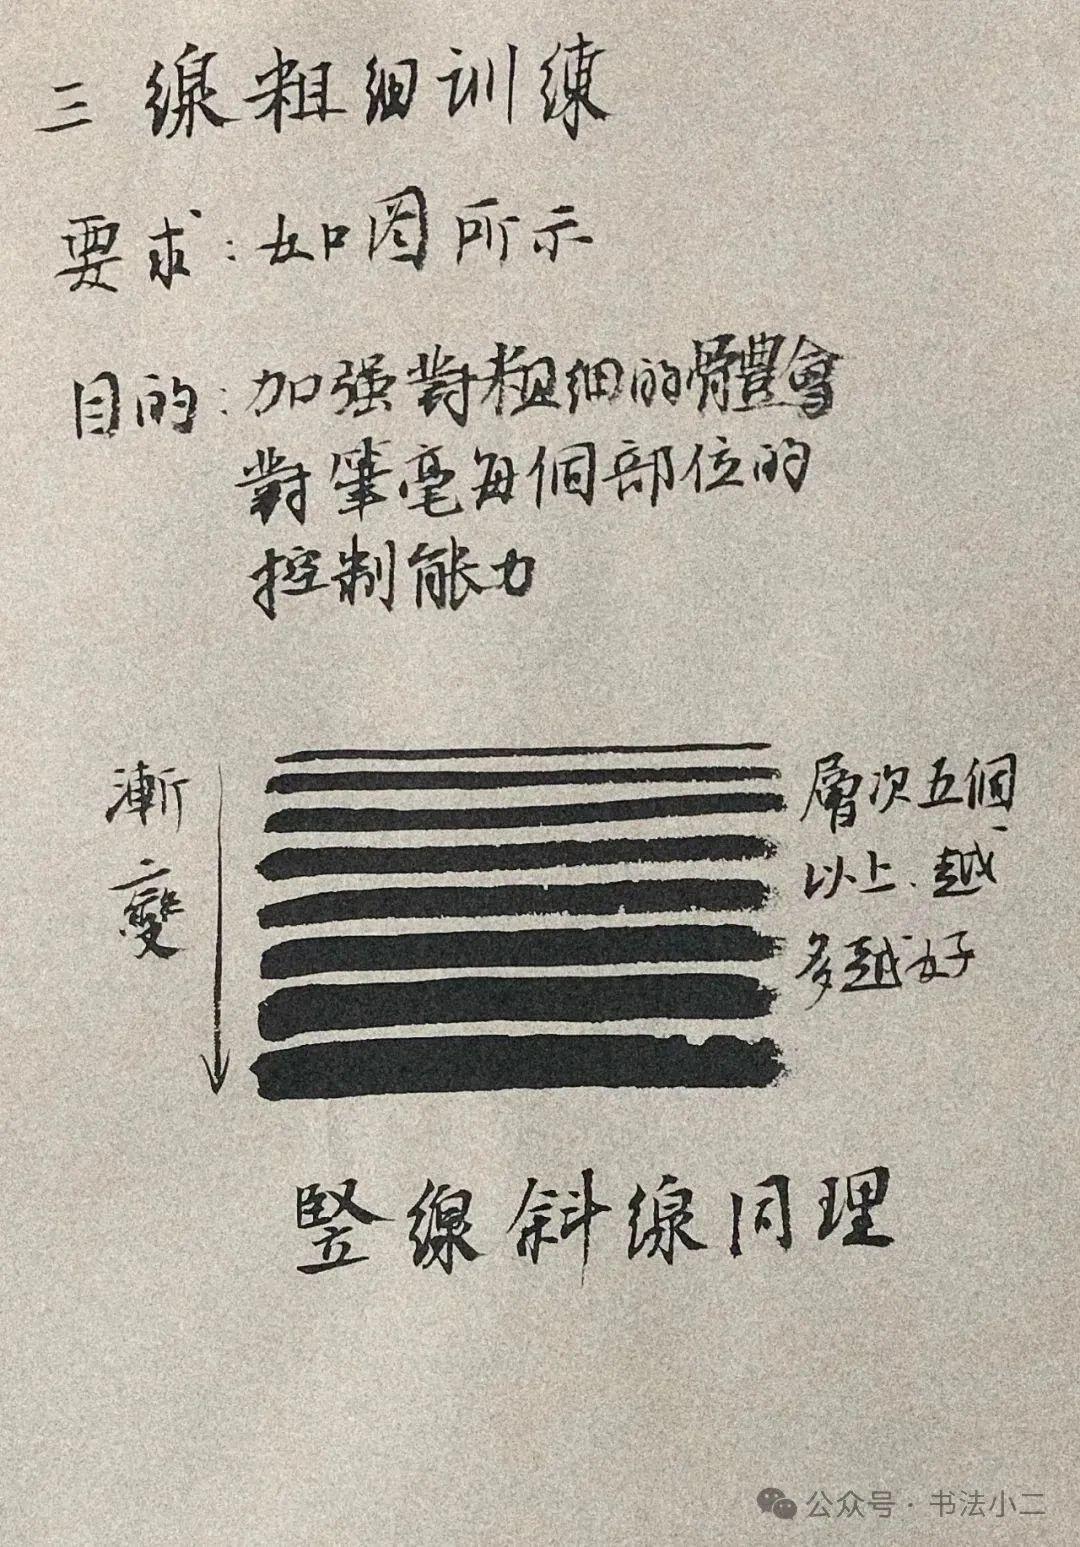 三 線粗细训練
要求:如图所示
目的:加强對粗细的體會
對筆毫每個部位的
控制能力
漸
變
層次五個
以上.越
多越好
竪線斜線同理
公众号·书法小二